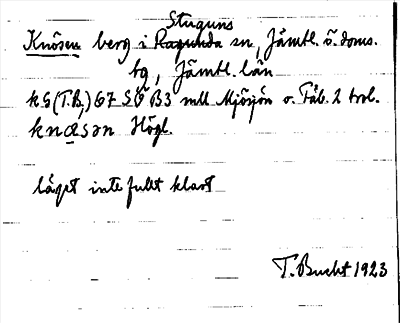 Stuguns
Knösen berg i Ragunda sn, Jämtl. ö. doms.
tg, Jämtl. län
k G (T.B.) 67 SÖ B3 mll Mjösjön o. Fåb. 2 trol.
knœsən Högl.
läget inte fullt klart
T. Bucht 1923